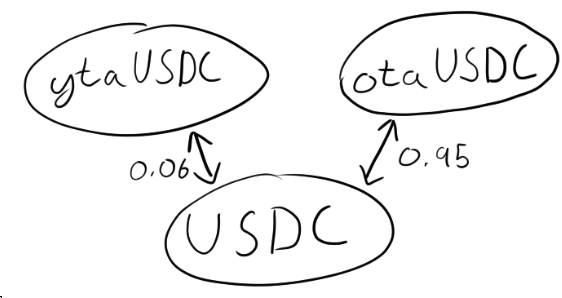 ytaUSDC
otaUSDC
0.06
0.95
USDC